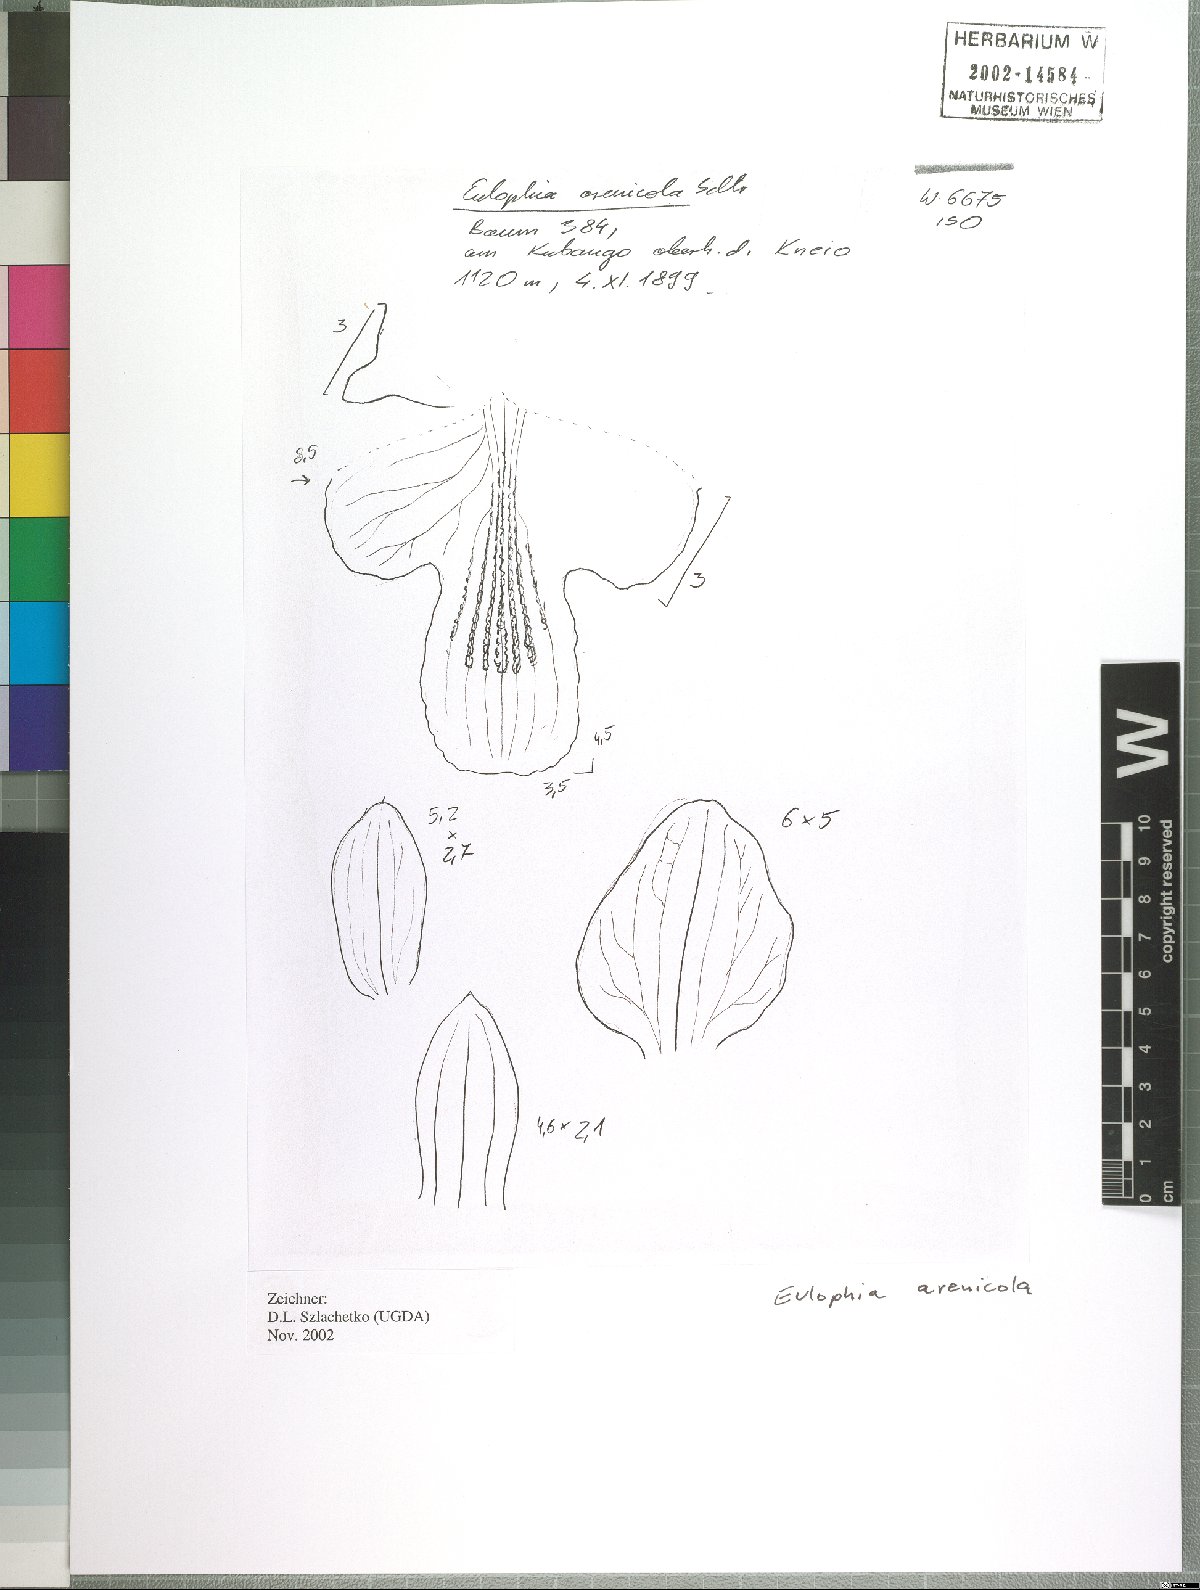 HERBARIUM W
2002-14584-
NATURHISTORISCHES
MUSEUM WIEN
Eulophia arenicola Schltr
W 6675
ISO
Baum 384,
am Kubango oberh. d. Kneio
1120 m, 4. XI. 1899
3
8,5
3
4,5
3,5
5,2
x
2,7
6 x 5
4,6 x 2,1
Eulophia arenicola
Zeichner:
D.L. Szlachetko (UGDA)
Nov. 2002
W
copyright reserved
0 1 2 3 4 5 6 7 8 9 10
cm